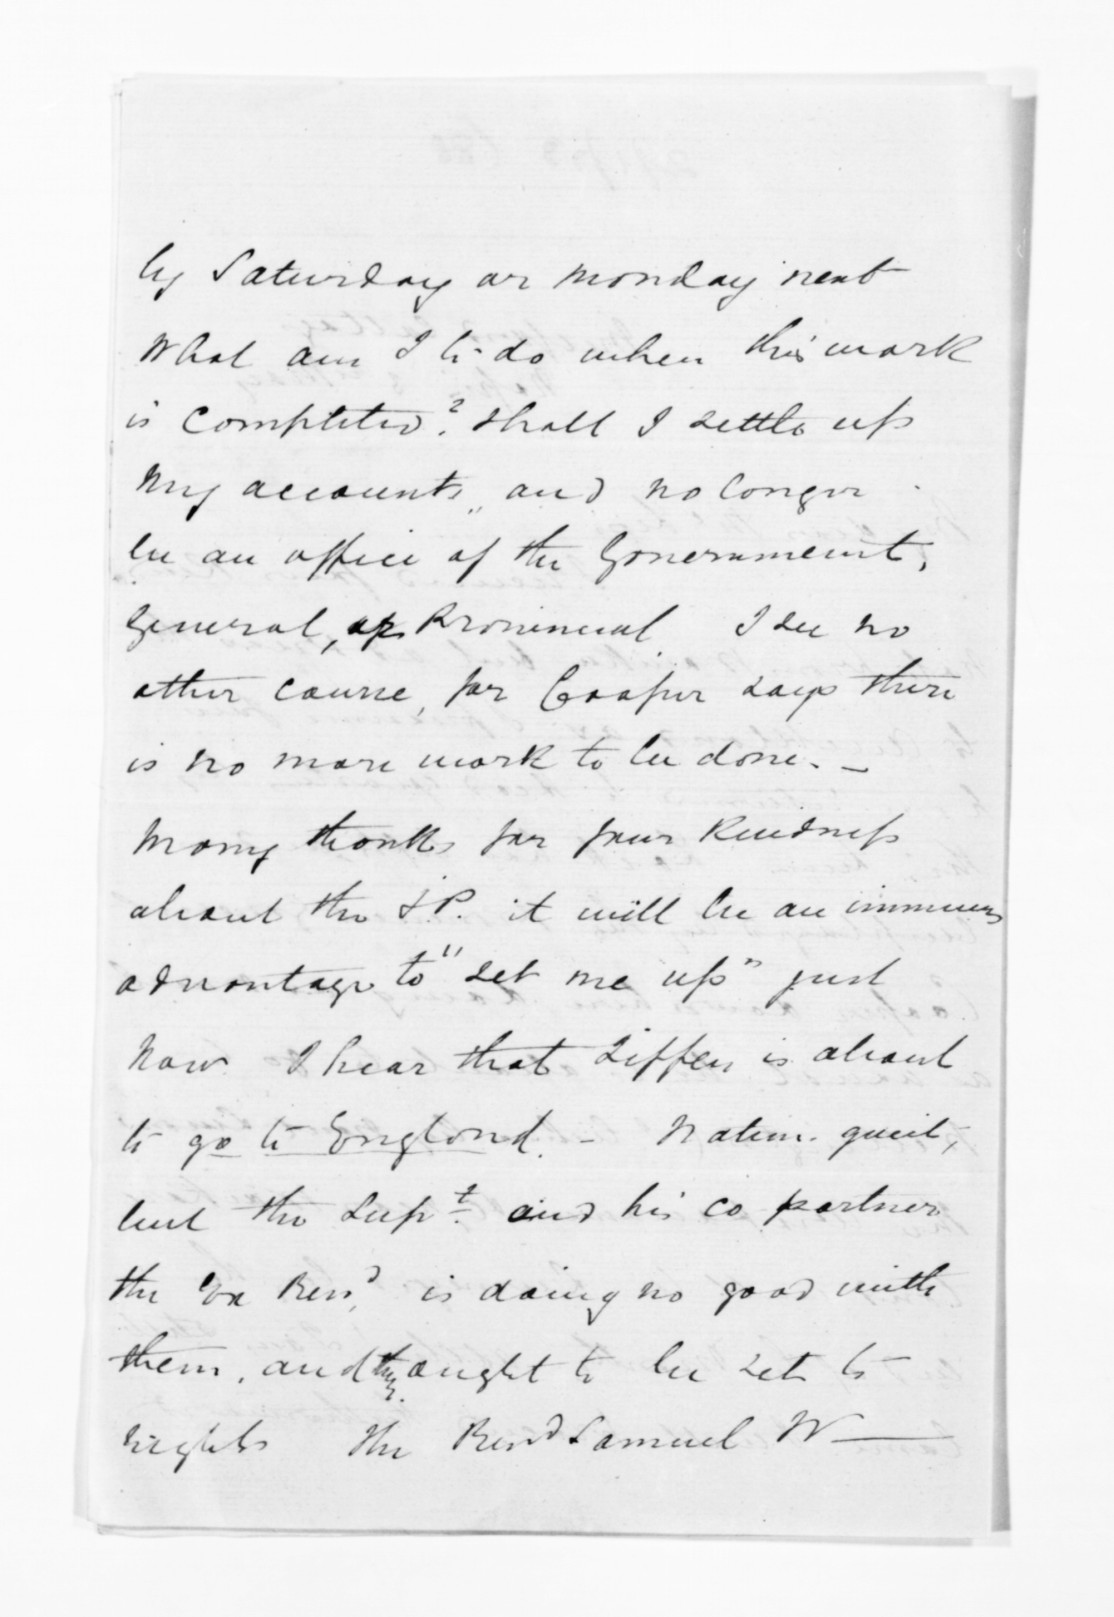 by Saturday or Monday next
What am I to do when this work
is completed? Shall I settle up
my accounts, and no longer
be an officer of the Government,
General, or Provincial I see no
other course, for Cooper says there
is no more work to be done. -
Many thanks for your kindness
about the J.P. it will be an immense
advantage to "set me up" just
now I hear that Tiffen is about
to go to England. - Natives quiet,
but the Supt. and his co partner
the Ex Revd, is doing no good with
them, and they ought to be set to
rights The Revd Samuel W—